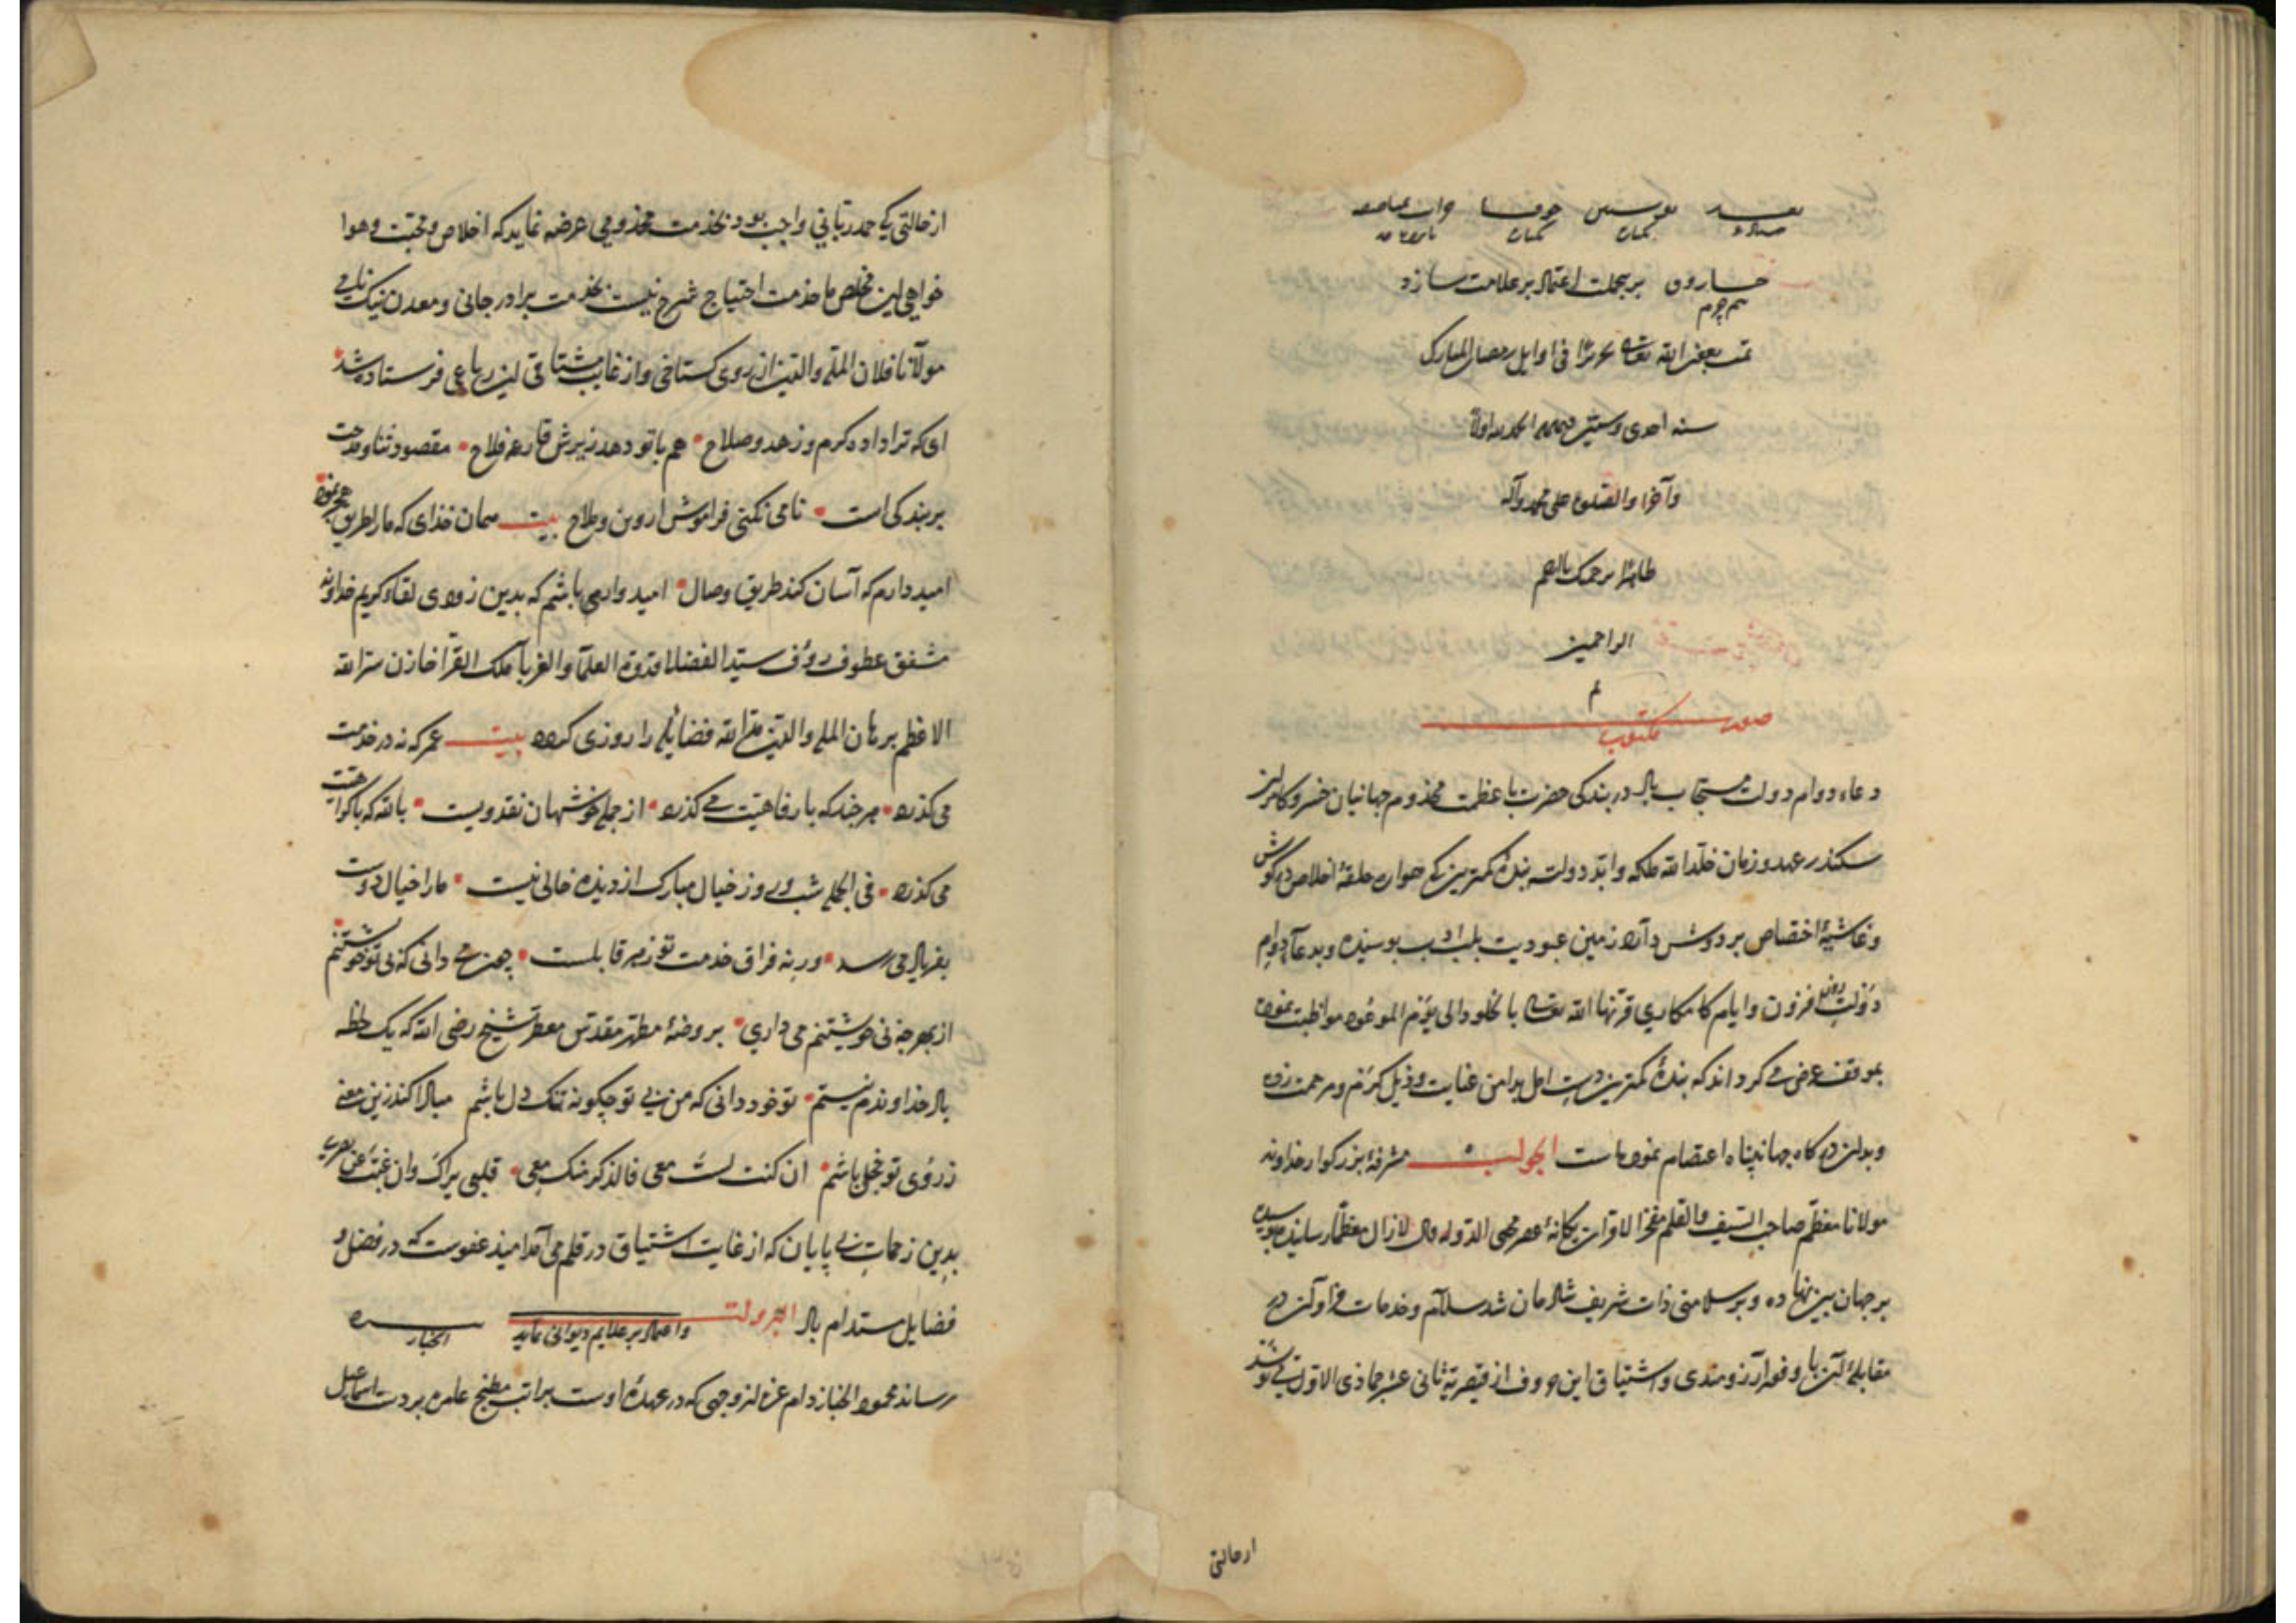 جارون بر بجهات اعتماد بر علامت سازد
فی اوایل رمضان المبارک
سنه احدی وستین الحمد لله اولاً
وآخراً والصلوة علی محمد وآله
برحمتک یا ارحم
الراحمین
صورت مکتوب
دعاء دوام دولت مستجاب باد در بندگی حضرت با عظمت مخذوم جهانیان خسرو کامران
سکندر عهد و زمان خلد الله ملکه وابّد دولته بندهٔ کمترین که همواره حلقهٔ اخلاص در گوش
وغاشیهٔ اختصاص بر دوش دارد زمین عبودیت بلب ادب بوسیده وبدعاء دوام
دولت روز فزون وایام کامکاری قرنها الله تعالی بالخلود الی یوم الموعود مواظبت نموده
بموقف عرض می کرداند که بندهٔ کمترین دست امل بدامن عنایت وذیل کرم ومرحمت زده
وبدان درکاه جهانپناه اعتصام نموده است الجواب مشرفهٔ بزرکوار خداوند
مولانا معظم صاحب السیف والقلم مفخر الاقران یکانهٔ عصر محیی الدوله لازال معظماً رسانید
بر جهان بین نهاده وبر سلامتی ذات شریف شادمان شد سلام وخدمات فراوان در
مقابلهٔ آن با وفور آرزومندی واشتیاق این حروف از قیصریه ثانی عشر جماذی الاول
ازحالتی
ازحالتی که حمد ربّانی واجب بود بخذمت مخذومی عرضه نماید که اخلاص ومحبّت وهوا
خواهی این مخلص با خذمت احتیاج شرح نیست بخذمت برادر جانی ومعدن نیک نامی
مولانا فلان الملة والدین از روی کستاخی واز غایت مشتاقی این رباعی فرستاده شد
ای که ترا داده کرم وزهد وصلاح هم باتو دهد قارعه فلاح مقصود ثنا ومدحت
بر بندکی است تا می نکنی فراموش بیت همان خذای که مارا طریق هجر نمود
امید دارم که آسان کند طریق وصال امیدوار می باشم که بدین زودی لقاء کریم خداوند
مشفق عطوف رؤف سیّد الفضلا قدوة العلما والغربا ملک القرا خازن سرّ الله
الاعظم برهان الملة والدین متّع الله فضایله را روزی کرده بیت عمر که نه در خدمت
می کذرد هر چند که با رفاهیت می کذرد از جمله خوشیهان نقدویست بالله که باکراهت
می کذرد فی الجمله شب وروز خیال مبارک از دیده خالی نیست مارا خیال دوست
بفریاد می رسد ورنه فراق خدمت تو زهر قاتلست چون می دانی که بی تو خویشتنم
از بهر چه بی خویشتنم می داری بروضهٔ مطهر مقدس معطر شیخ رضی الله که یک لحظه
باد خداوندم نیستم تو خود دانی که من بی تو چکونه تنک دل باشم مبادا کندزین معنی
زروی تو خجل باشم ان کنت لست معی فالذکر منک معی قلبی یراک وان غبت عن بصری
بدین زحمات بی پایان که از غایت اشتیاق در قلم می آمد امیذ عفوست که در فضل و
فضایل مستدام باد البروات واعتماد بر علایم دیوانی نماید الخباز
رساند محمود الخباز دام عزه از وجهی که در عهدهٔ اوست براتب مطبخ عامره بر دست اسماعیل